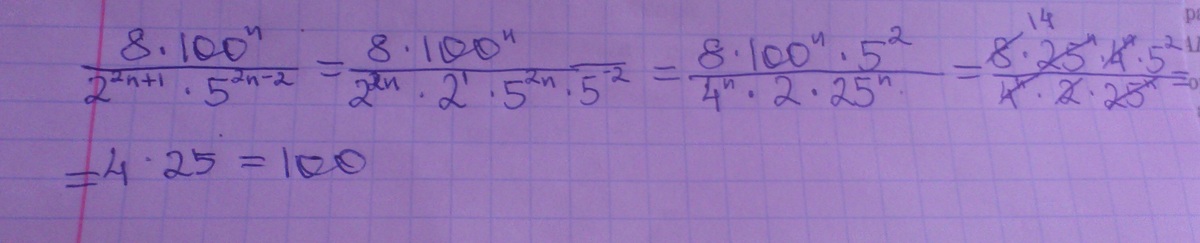 8·100ⁿ / 2²ⁿ⁺¹·5²ⁿ⁻² = 8·100ⁿ / 2²ⁿ·2¹·5²ⁿ·5⁻² = 8·100ⁿ·5² / 4ⁿ·2·25ⁿ = 8·25ⁿ·4ⁿ·5² / 4ⁿ·2·25ⁿ =
= 4·25 = 100